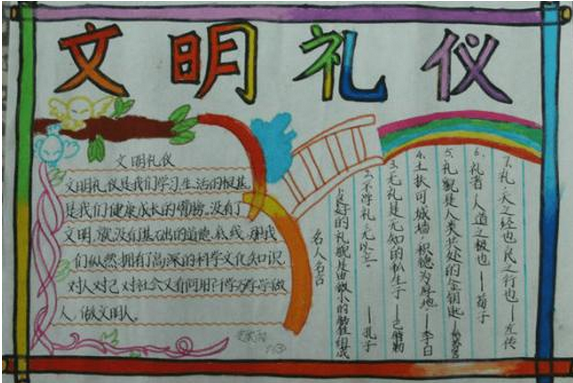 文明礼仪
文明礼仪
文明礼仪是我们学习、生活的根基,
是我们健康成长的臂膀。没有了
文明,就没有基础的道德底线,那我
们纵然拥有高深的科学文化知识,
对人对己对社会又有何用?千学万学学做
人,做文明人。
名人名言
1.良好的礼貌是由微小的牺牲组成
2.不学礼,无以立。——孔子
3.无礼是无知的私生子——巴特勒
4.土扶可成墙,积德为厚地——李白
5.礼貌是人类共处的金钥匙——
6.礼者,人道之极也——荀子
7.礼,天之经也,民之行也——左传